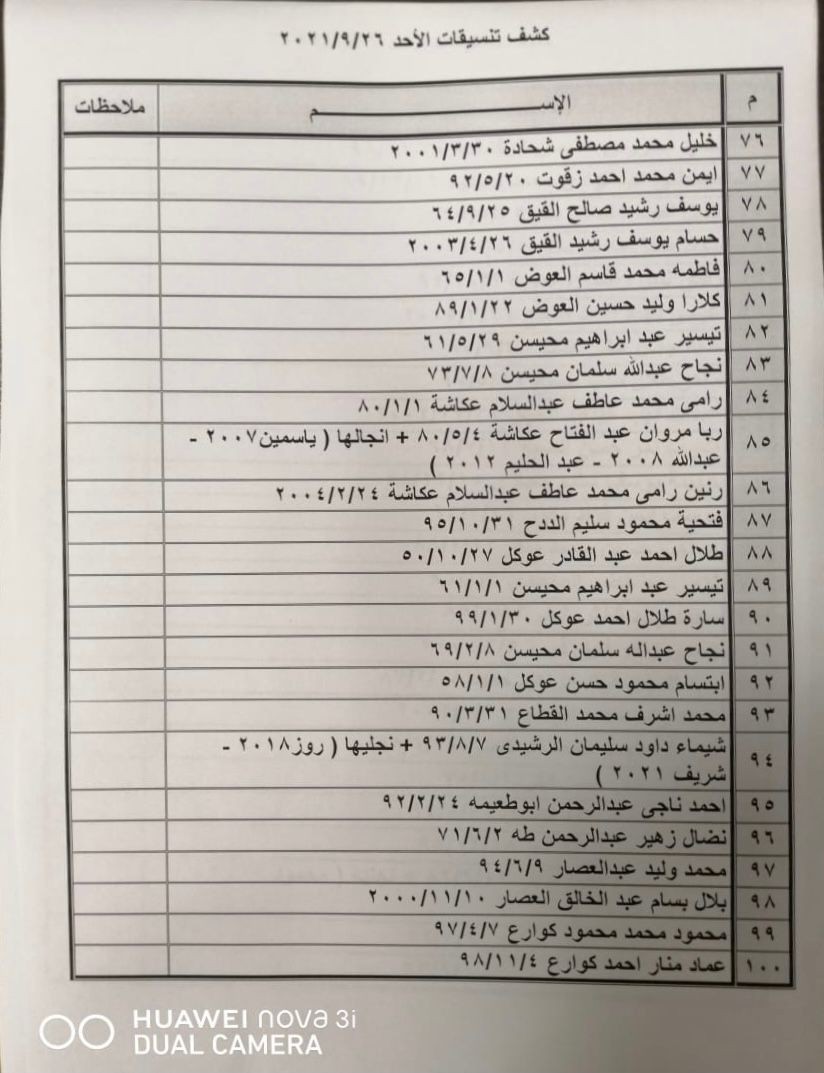 كشف تنسيقات الأحد ٢٠٢١/٩/٢٦
م الإســـــــم ملاحظات
٧٦ خليل محمد مصطفى شحادة ٢٠٠١/٣/٣٠
٧٧ ايمن محمد احمد زقوت ٩٢/٥/٢٠
٧٨ يوسف رشيد صالح القيق ٦٤/٩/٢٥
٧٩ حسام يوسف رشيد القيق ٢٠٠٣/٤/٢٦
٨٠ فاطمه محمد قاسم العوض ٦٥/١/١
٨١ كلارا وليد حسين العوض ٨٩/١/٢٢
٨٢ تيسير عبد ابراهيم محيسن ٦١/٥/٢٩
٨٣ نجاح عبدالله سلمان محيسن ٧٣/٧/٨
٨٤ رامى محمد عاطف عبدالسلام عكاشة ٨٠/١/١
٨٥ ربا مروان عبد الفتاح عكاشة ٨٠/٥/٤ + انجالها ( ياسمين٢٠٠٧ -
عبدالله ٢٠٠٨ - عبد الحليم ٢٠١٢ )
٨٦ رنين رامى محمد عاطف عبدالسلام عكاشة ٢٠٠٤/٢/٢٤
٨٧ فتحية محمود سليم الددح ٩٥/١٠/٣١
٨٨ طلال احمد عبد القادر عوكل ٥٠/١٠/٢٧
٨٩ تيسير عبد ابراهيم محيسن ٦١/١/١
٩٠ سارة طلال احمد عوكل ٩٩/١/٣٠
٩١ نجاح عبداله سلمان محيسن ٦٩/٢/٨
٩٢ ابتسام محمود حسن عوكل ٥٨/١/١
٩٣ محمد اشرف محمد القطاع ٩٠/٣/٣١
٩٤ شيماء داود سليمان الرشيدى ٩٣/٨/٧ + نجليها ( روز٢٠١٨ -
شريف ٢٠٢١ )
٩٥ احمد ناجى عبدالرحمن ابوطعيمه ٩٢/٢/٢٤
٩٦ نضال زهير عبدالرحمن طه ٧١/٦/٢
٩٧ محمد وليد عبدالعصار ٩٤/٦/٩
٩٨ بلال بسام عبد الخالق العصار ٢٠٠٠/١١/١٠
٩٩ محمود محمد محمود كوارع ٩٧/٤/٧
١٠٠ عماد منار احمد كوارع ٩٨/١١/٤
HUAWEI nova 3i
DUAL CAMERA